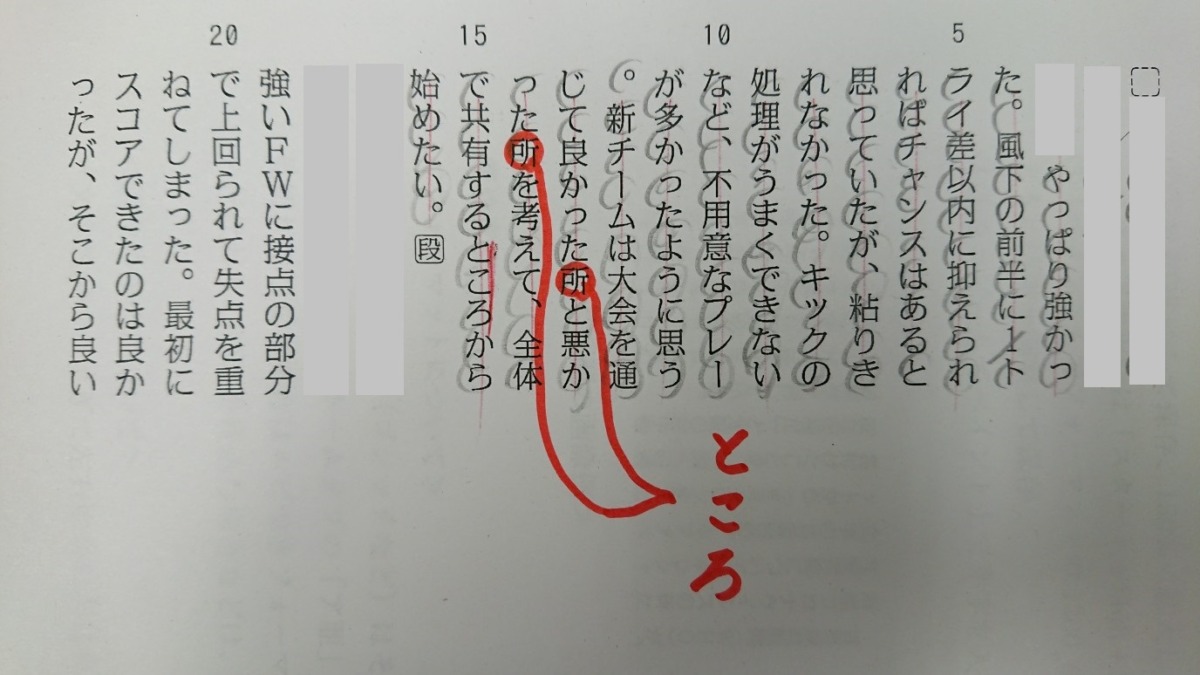 やっぱり強かっ
た。風下の前半に1ト
5
ライ差以内に抑えられ
ればチャンスはあると
思っていたが、粘りき
れなかった。キックの
処理がうまくできない
10
など、不用意なプレー
が多かったように思う
。新チームは大会を通
じて良かった所と悪か
った所を考えて、全体
ところ
15
で共有するところから
始めたい。段
強いFWに接点の部分
20
で上回られて失点を重
ねてしまった。最初に
スコアできたのは良か
ったが、そこから良い